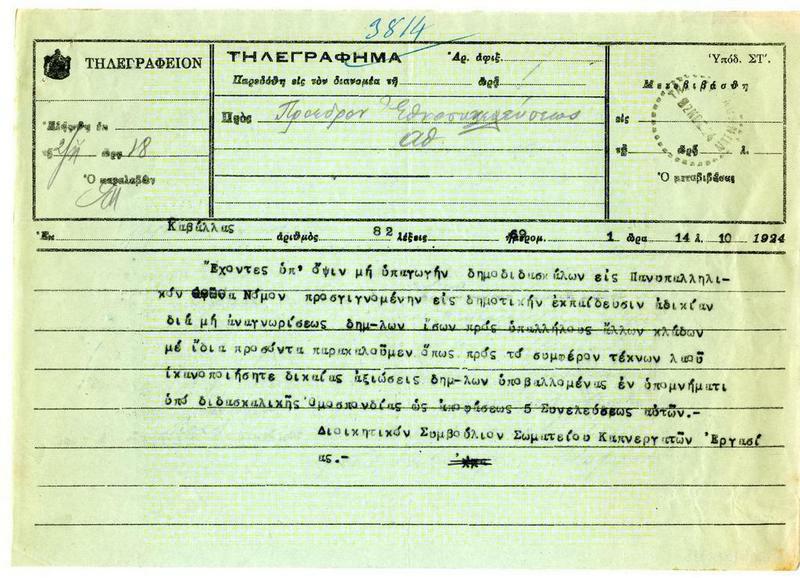 3814
ΤΗΛΕΓΡΑΦΕΙΟΝ
ΤΗΛΕΓΡΑΦΗΜΑ Ἀρ. ἀφιξ.
Ὑπόδ. ΣΤ΄.
Παρεδόθη εἰς τὸν διανομέα τῇ ὥρᾳ
Μετεβιβάσθη
Πρὸς Πρόεδρον Ἐθνοσυνελεύσεως
εἰς
Ἐλήφθη ἐκ
Αθ
τῇ ὥρᾳ 18
τῇ ὥρᾳ λ.
Ὁ παραλαβὼν
Ὁ μεταβιβάσας
Ἐκ Καβάλλας ἀριθμὸς 82 λέξεις 69 ἡμερομ. 1 ὥρα 14 λ. 10 1924
Ἔχοντες ὑπ' ὄψιν μή ὑπαγωγήν δημοδιδασκάλων εἰς Πανυπαλληλι-
κόν Νόμον προσγιγνομένην εἰς δημοτικήν ἐκπαίδευσιν ἀδικίαν
διά μή ἀναγνωρίσεως δημ-λων ἴσων πρός ὑπαλλήλους ἄλλων κλάδων
μέ ἴδια προσόντα παρακαλοῦμεν ὅπως πρός τό συμφέρον τέκνων λαοῦ
ἱκανοποιήσητε δικαίας ἀξιώσεις δημ-λων ὑποβαλλομένας ἐν ὑπομνήματι
ὑπό διδασκαλικῆς Ὁμοσπονδίας ὡς ἀποφάσεως 5 Συνελεύσεως αὐτῶν.-
Διοικητικόν Συμβούλιον Σωματείου Καπνεργατῶν Ἐργασί
ας.-